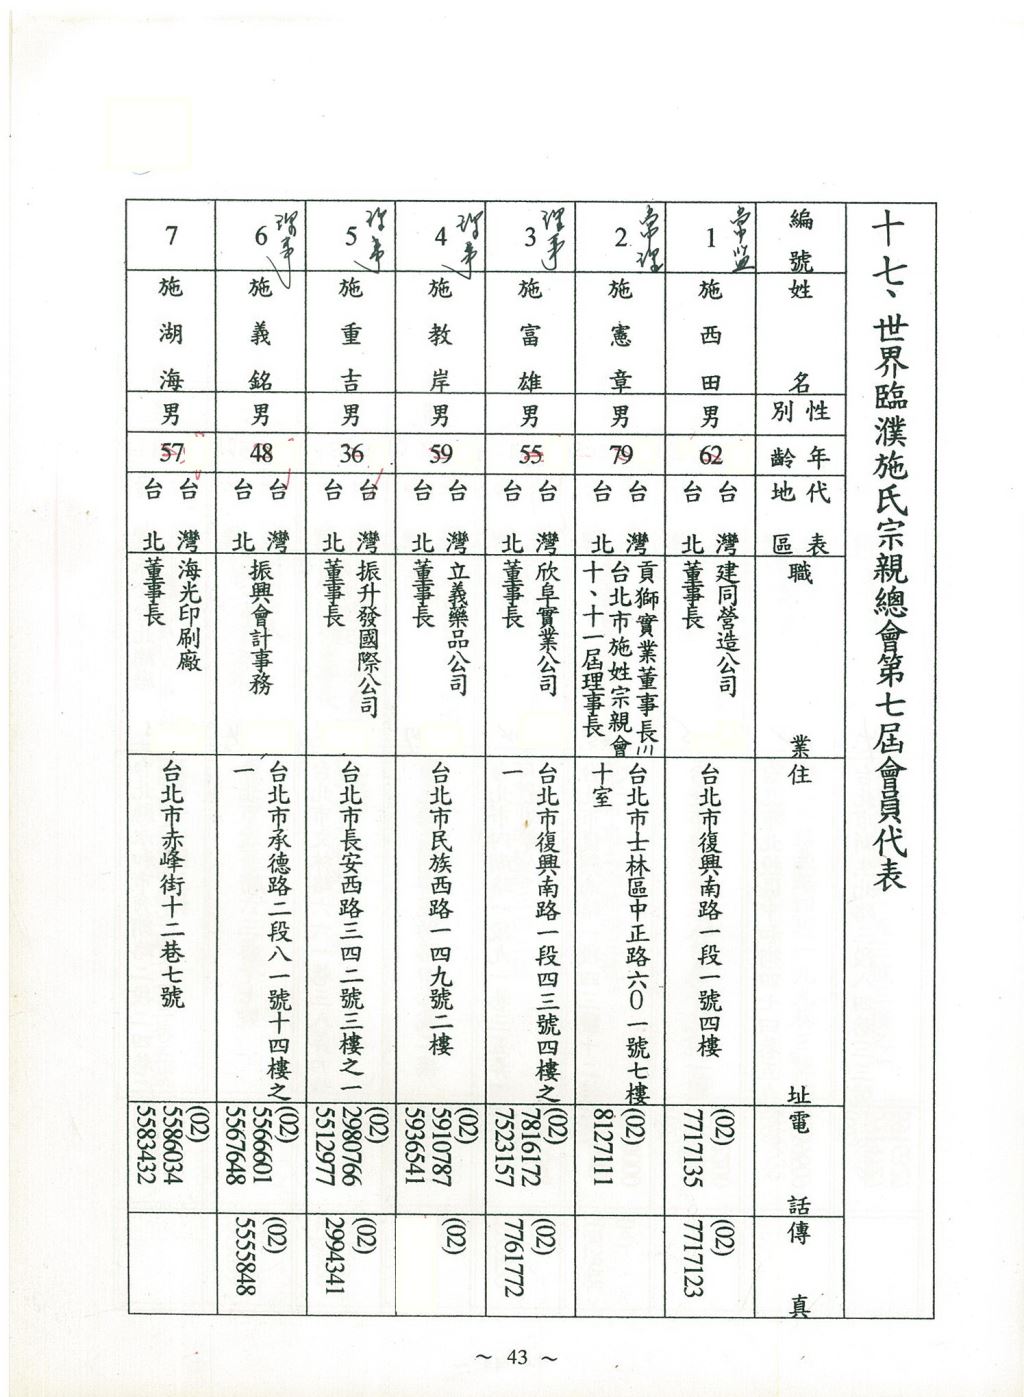 十七、世界臨濮施氏宗親總會第七屆會員代表
編號 姓名 性別 年齡 代表地區 職業 住址 電話 傳真
1 常監 施西田 男 62 台灣台北 建同營造公司董事長 台北市復興南路一段一號四樓 (02) 7717135 (02) 7717123
2 常理 施憲章 男 79 台灣台北 貢獅實業董事長 台北市施姓宗親會十、十一屆理事長 台北市士林區中正路六0一號七樓十室 (02) 8127111
3 理事 施富雄 男 55 台灣台北 欣阜實業公司董事長 台北市復興南路一段四三號四樓之一 (02) 7816172 7523157 (02) 7761772
4 理事 施教岸 男 59 台灣台北 立義藥品公司董事長 台北市民族西路一四九號二樓 (02) 5910787 5936541 (02)
5 理事 施重吉 男 36 台灣台北 振升發國際公司董事長 台北市長安西路三四二號三樓之一 (02) 2980766 5512977 (02) 2994341
6 理事 施義銘 男 48 台灣台北 振興會計事務 台北市承德路二段八一號十四樓之一 (02) 5566601 5567648 (02) 5555848
7 施湖海 男 57 台灣台北 海光印刷廠董事長 台北市赤峰街十二巷七號 (02) 5586034 5583432
~ 43 ~